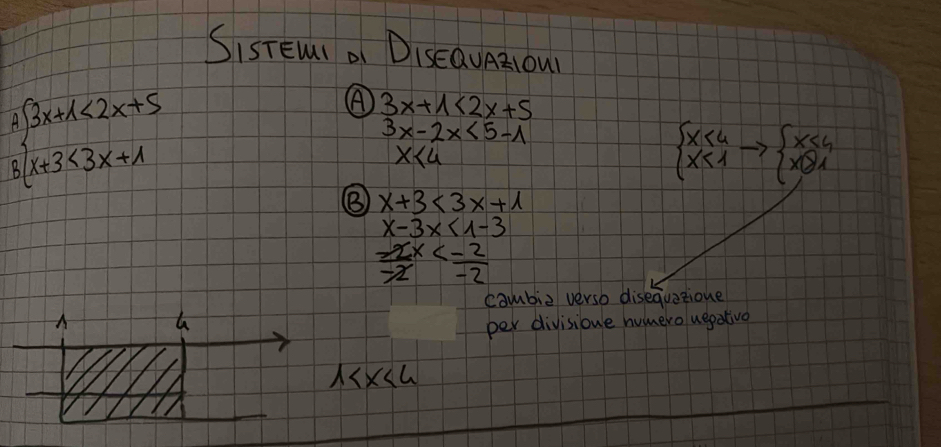 SISTEMI DI DISEQUAZIONI
A { 3x+1<2x+5
B { x+3<3x+1
Ⓐ 3x+1<2x+5
3x-2x<5-1
x<4
Ⓑ x+3<3x+1
x-3x<1-3
-2x < -2
-2 -2
{ x<4 → { x<4
{ x<1 { x>1
cambia verso disequazione
per divisione numero negativo
1 4
1<x<4